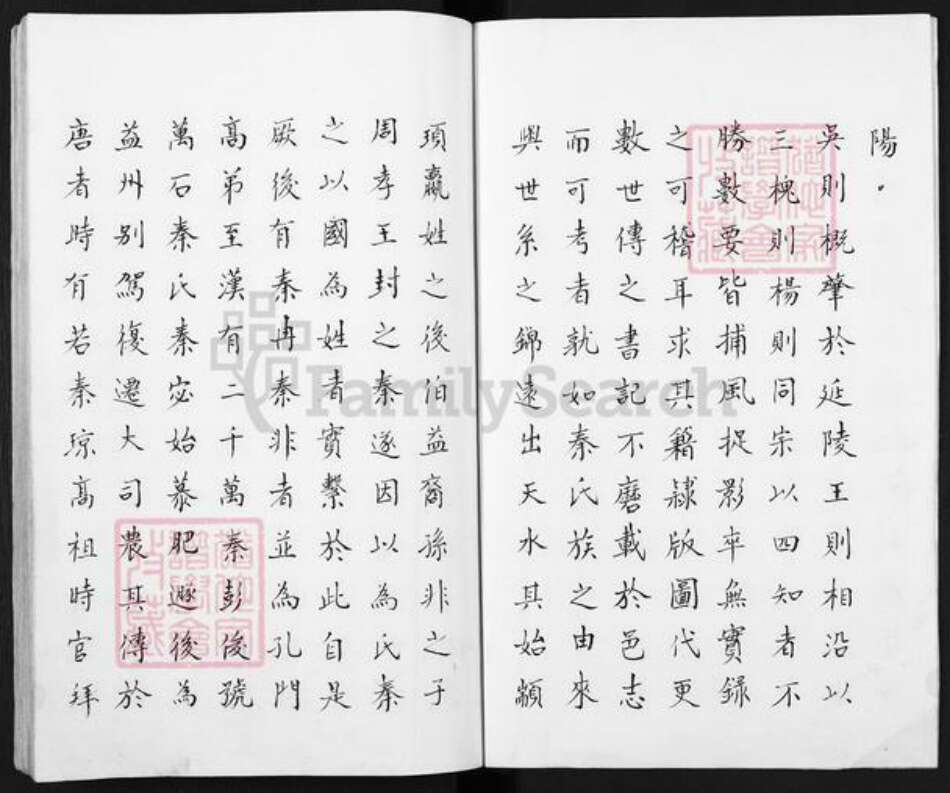 陽.
吳則概肇於延陵王則相沿以
三槐則楊則同宗以四知者不
勝數要皆捕風捉影卒無實錄
之可稽耳求其籍隸版圖代更
數世傳之書記不磨載於邑志
而可考者孰如秦氏族之由來
與世系之錦遠出天水其始顓
頊嬴姓之後伯益裔孫非之子
周孝王封之秦遂因以為氏秦
之以國為姓者實繫於此自是
厥後有秦冉秦非者並為孔門
高弟至漢有二千萬秦彭後號
萬石秦氏秦宓始慕肥遯後為
益州別駕復遷大司農其傳於
唐者時有若秦瓊高祖時官拜
FamilySearch